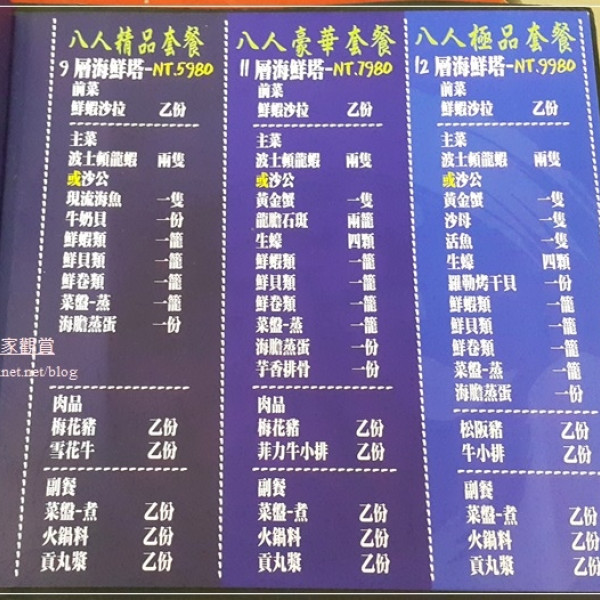 八人精品套餐
9層海鮮塔-NT.5980
前菜
鮮蝦沙拉 乙份
主菜
波士頓龍蝦 兩隻
或沙公
現流海魚 一隻
牛奶貝 一份
鮮蝦類 一籠
鮮貝類 一籠
鮮卷類 一籠
菜盤-蒸 一籠
海膽蒸蛋 一份
肉品
梅花豬 乙份
雪花牛 乙份
副餐
菜盤-煮 乙份
火鍋料 乙份
貢丸漿 乙份
八人豪華套餐
11層海鮮塔-NT.7980
前菜
鮮蝦沙拉 乙份
主菜
波士頓龍蝦 兩隻
或沙公
黃金蟹 一隻
龍膽石斑 兩籠
生蠔 四顆
鮮蝦類 一籠
鮮貝類 一籠
鮮卷類 一籠
菜盤-蒸 一籠
海膽蒸蛋 一份
芋香排骨 一份
肉品
梅花豬 乙份
菲力牛小排 乙份
副餐
菜盤-煮 乙份
火鍋料 乙份
貢丸漿 乙份
八人極品套餐
12層海鮮塔-NT.9980
前菜
鮮蝦沙拉 乙份
主菜
波士頓龍蝦 兩隻
或沙公
黃金蟹 一隻
沙母 一隻
活魚 一隻
生蠔 四顆
羅勒烤干貝 一份
鮮蝦類 一籠
鮮貝類 一籠
鮮卷類 一籠
菜盤-蒸 一籠
海膽蒸蛋 一份
松阪豬 乙份
牛小排 乙份
副餐
菜盤-煮 乙份
火鍋料 乙份
貢丸漿 乙份
家觀賞
net.net/blog